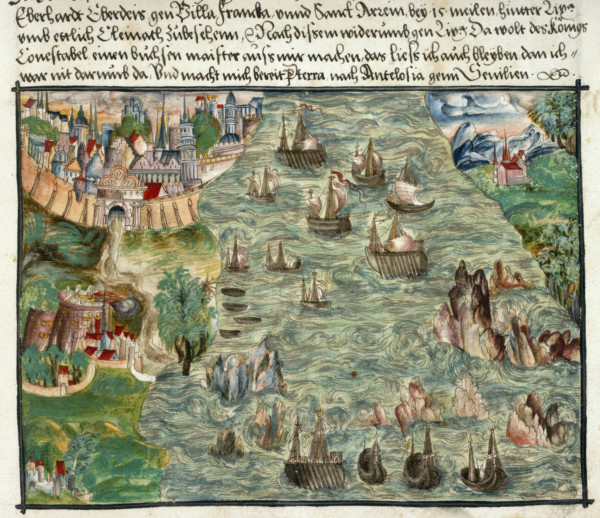 Eberhardt Eberders gen Villa Franka, vnnd Sanct Arzem, bey is meilen hinter Lixz
vmb ettlich Cleinath zubeschem, Nach dissem widerumb gen Lixz Da wolt des Königs
Conestabel einen büchsen maister auss mir machen, das liess ich auch bleyben dan ich
war nit darumb da Vnd macht mich bereit terra nach Antelosia genn Sevilien.